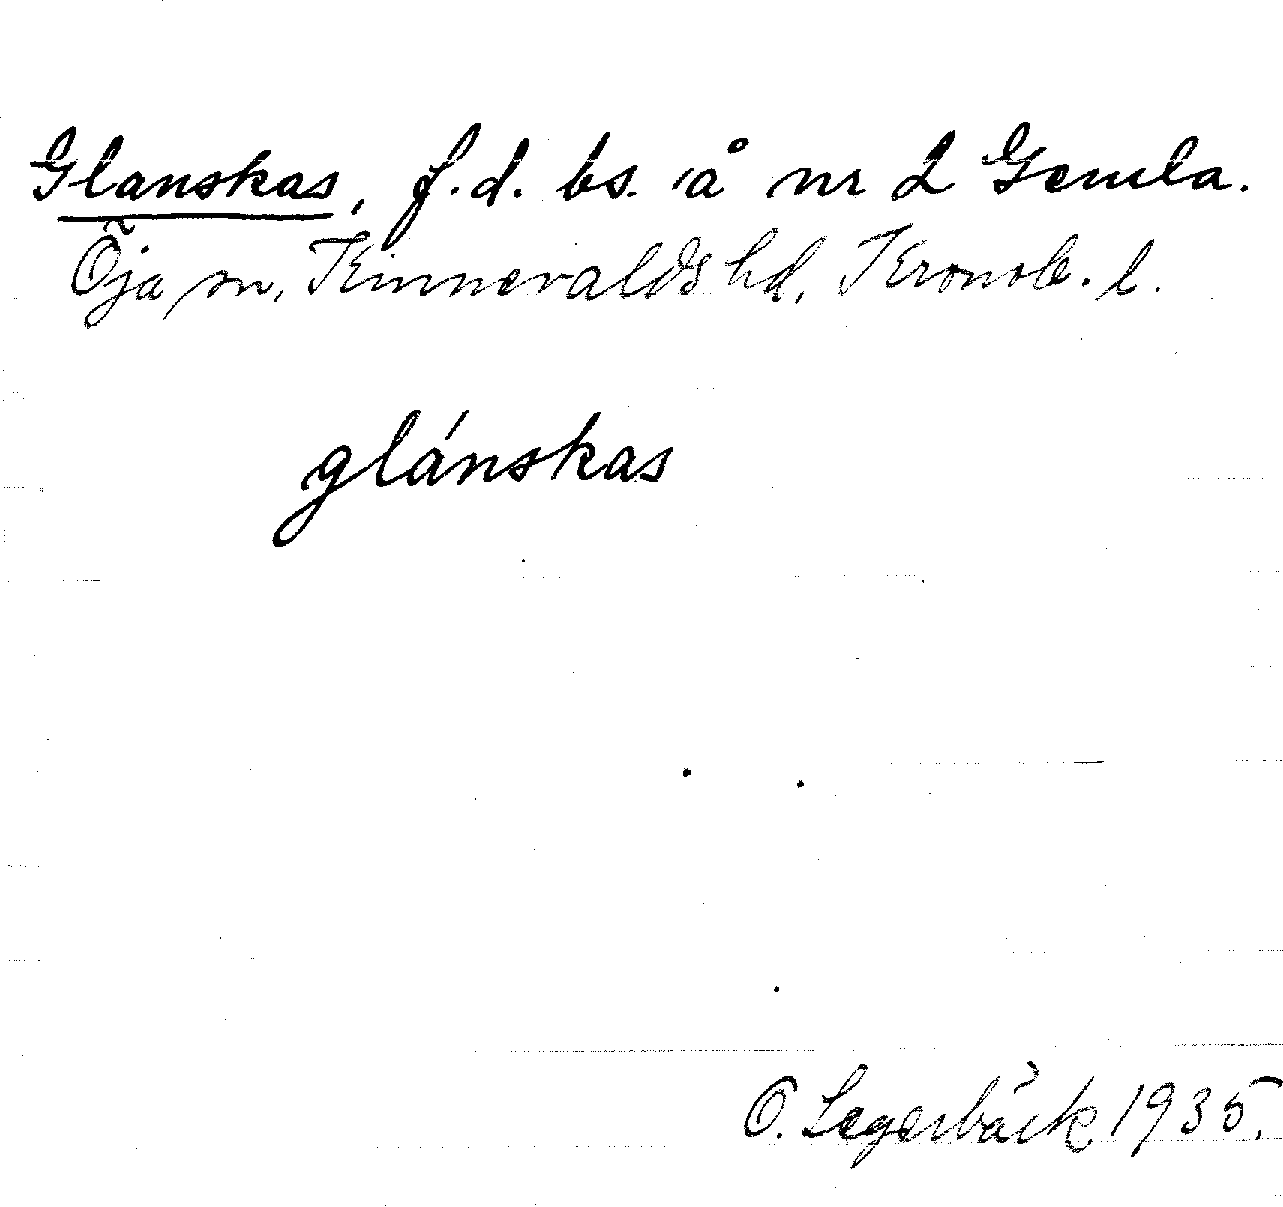 Glanskas, f.d. bs. å nr 2 Gemla.
Öja sn, Kinnevalds hd, Kronob. l.
glánskas
O. Segerbäck 1935.